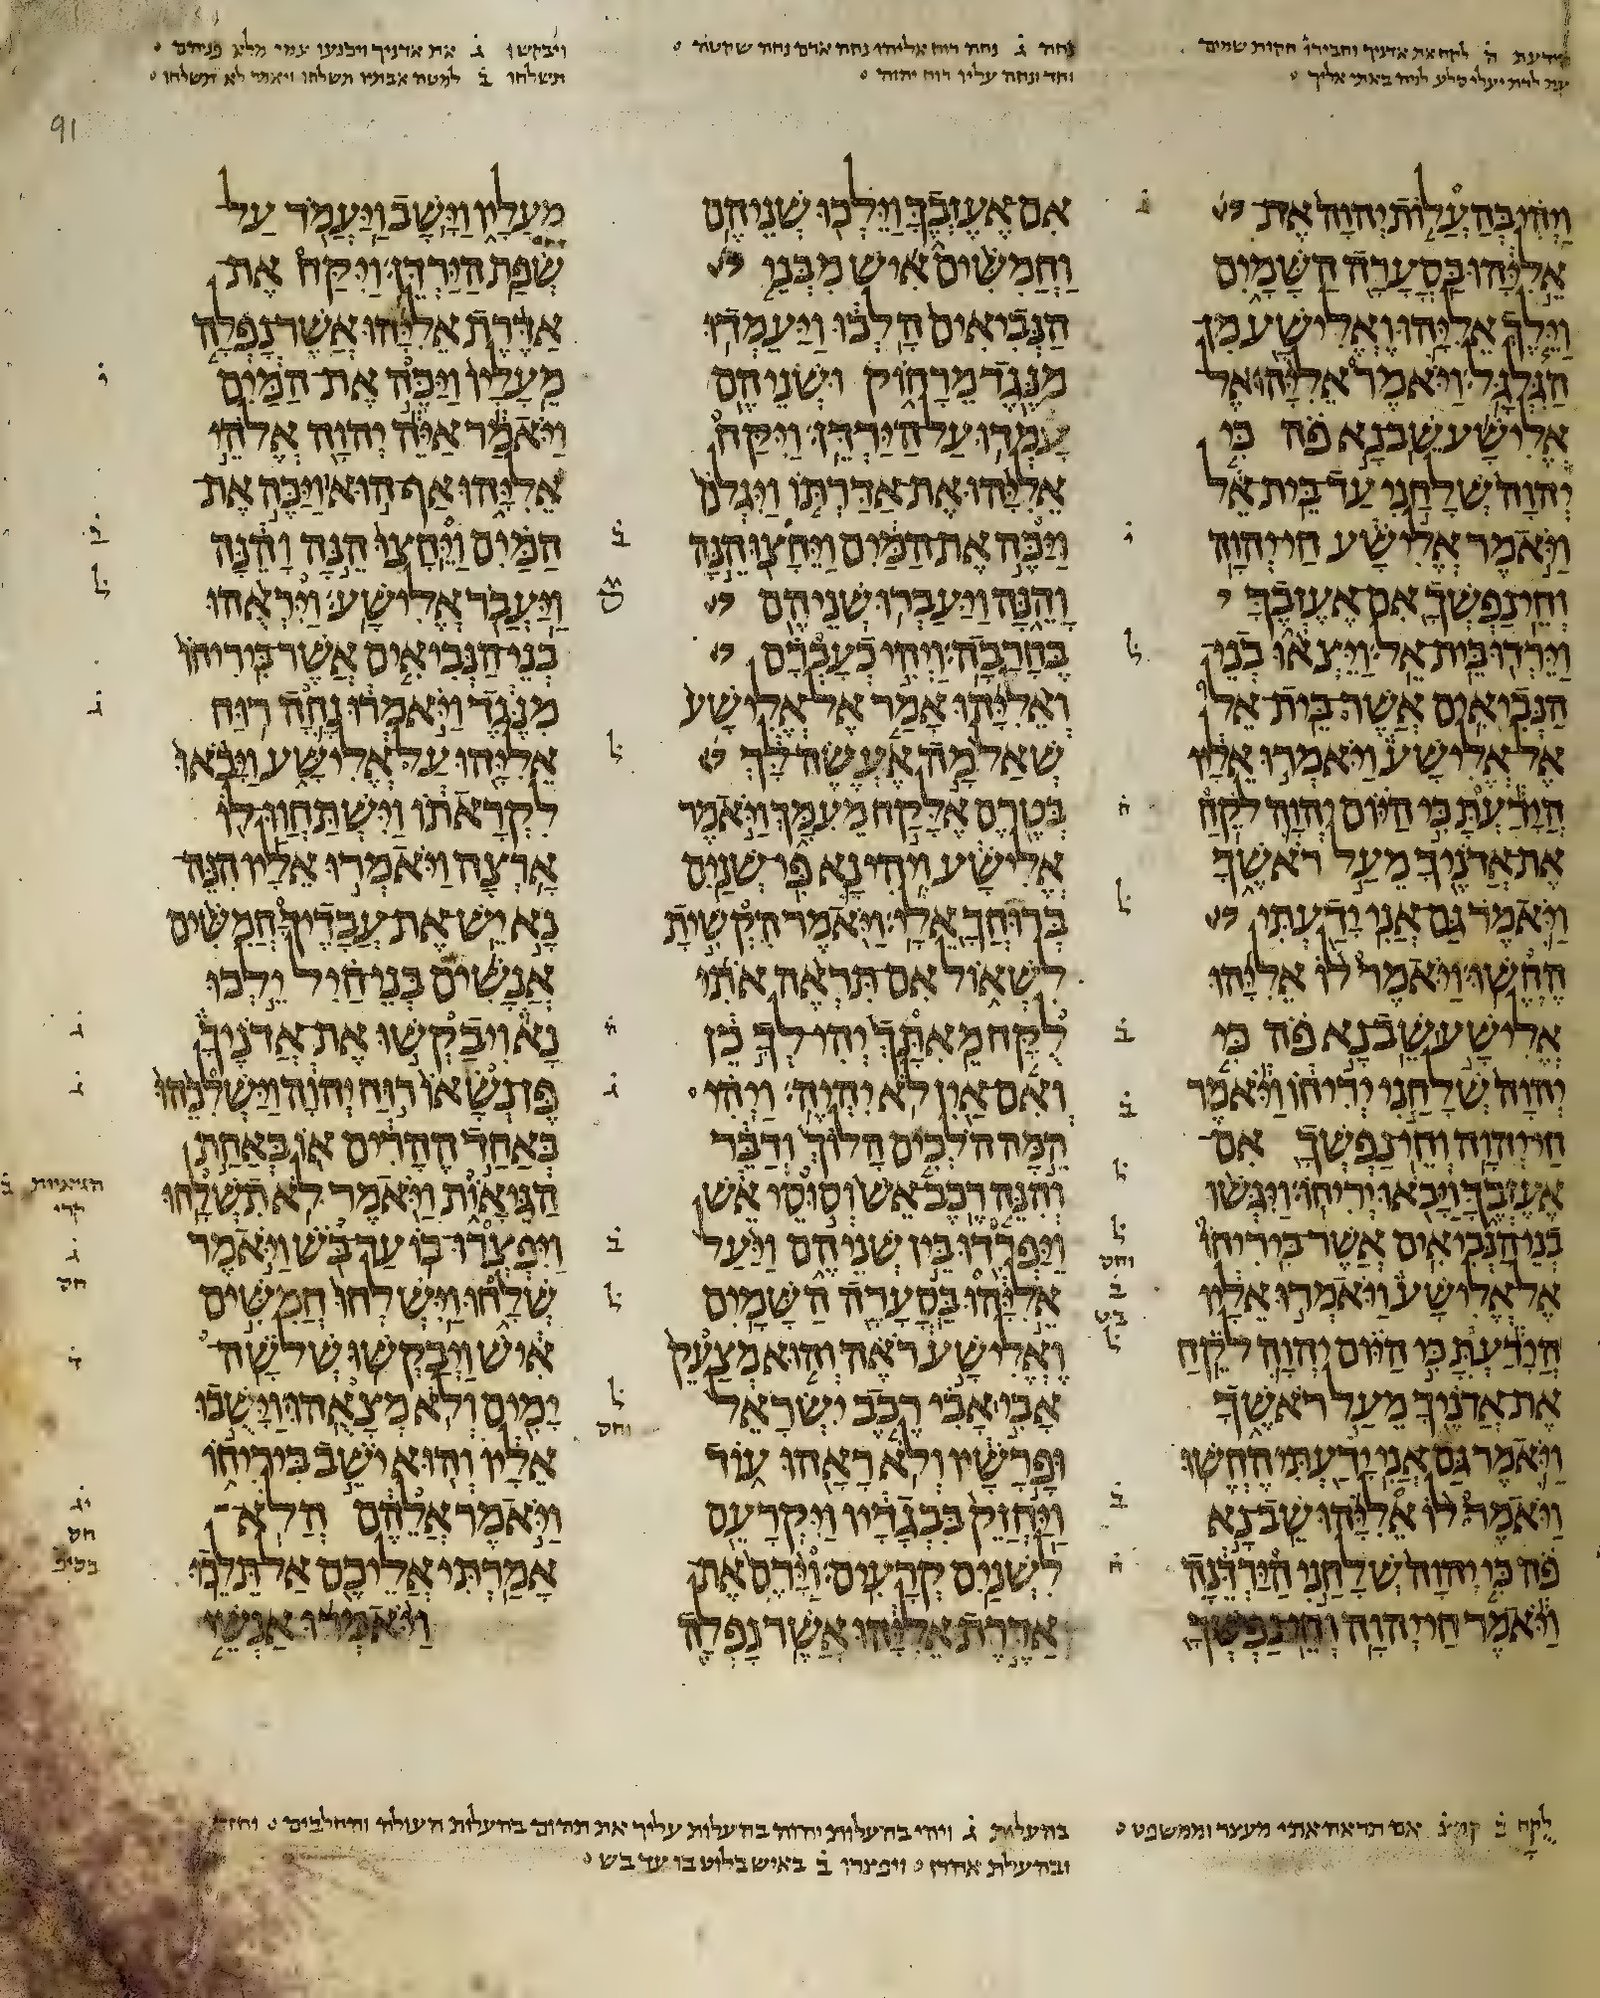 וידעת ה֗ לקח את אדניך וחבירו חקות שמים
עת לדת יעלי סלע לנית באתי אליך
נחה ג֗ נחה רוח אליהו נחה ארם נחה שקטה
וחד ונחה עליו רוח יהוה
ויבקשו ג֗ את אדניך ויכנעו עמי מלא פניהם
תשלחו ב֗ למטה אבתיו תשלחו ויאמר לא תשלחו
91
ויהי בהעלות יהוה את
אליהו בסערה השמים
וילך אליהו ואלישע מן
הגלגל ויאמר אליהו אל
אלישע שב נא פה כי
יהוה שלחני עד בית אל
ויאמר אלישע חי יהוה
וחי נפשך אם אעזבך
וירדו בית אל ויצאו בני
הנביאים אשר בית אל
אל אלישע ויאמרו אליו
הידעת כי היום יהוה לקח
את אדניך מעל ראשך
ויאמר גם אני ידעתי
החשו ויאמר לו אליהו
אלישע שב נא פה כי
יהוה שלחני יריחו ויאמר
חי יהוה וחי נפשך אם
אעזבך ויבאו יריחו ויגשו
בני הנביאים אשר ביריחו
אל אלישע ויאמרו אליו
הידעת כי היום יהוה לקח
את אדניך מעל ראשך
ויאמר גם אני ידעתי החשו
ויאמר לו אליהו שב נא
פה כי יהוה שלחני הירדנה
ויאמר חי יהוה וחי נפשך
אם אעזבך וילכו שניהם
וחמשים איש מבני
הנביאים הלכו ויעמדו
מנגד מרחוק ושניהם
עמדו על הירדן ויקח
אליהו את אדרתו ויגלם
ויכה את המים ויחצו הנה
והנה ויעברו שניהם
בחרבה ויהי כעברם
ואליהו אמר אל אלישע
שאל מה אעשה לך
בטרם אלקח מעמך ויאמר
אלישע ויהי נא פי שנים
ברוחך אלי ויאמר הקשית
לשאול אם תראה אתי
לקח מאתך יהי לך כן
ואם אין לא יהיה ויהי
המה הלכים הלוך ודבר
והנה רכב אש וסוסי אש
ויפרדו בין שניהם ויעל
אליהו בסערה השמים
ואלישע ראה והוא מצעק
אבי אבי רכב ישראל
ופרשיו ולא ראהו עוד
ויחזק בבגדיו ויקרעם
לשנים קרעים וירם את
אדרת אליהו אשר נפלה
מעליו וישב ויעמד על
שפת הירדן ויקח את
אדרת אליהו אשר נפלה
מעליו ויכה את המים
ויאמר איה יהוה אלהי
אליהו אף הוא ויכה את
המים ויחצו הנה והנה
ויעבר אלישע ויראהו
בני הנביאים אשר ביריחו
מנגד ויאמרו נחה רוח
אליהו על אלישע ויבאו
לקראתו וישתחוו לו
ארצה ויאמרו אליו הנה
נא יש את עבדיך חמשים
אנשים בני חיל ילכו
נא ויבקשו את אדניך
פן נשאו רוח יהוה וישלכהו
באחד ההרים או באחת
הגיאות ויאמר לא תשלחו
ויפצרו בו עד בש ויאמר
שלחו וישלחו חמשים
איש ויבקשו שלשה
ימים ולא מצאהו וישבו
אליו והוא ישב ביריחו
ויאמר אלהם הלא
אמרתי אליכם אל תלכו
ויאמרו אנשי
לקח ב֗ אם תראה אתי מעצר וממשפט
בהעלות ג֗ ויהי בהעלות יהוה בהעלות עליך את תהום בהעלות העולה והחלבים
ובהעלת אהרן ויפצרו ב֗ באיש בלוט בו עד בש